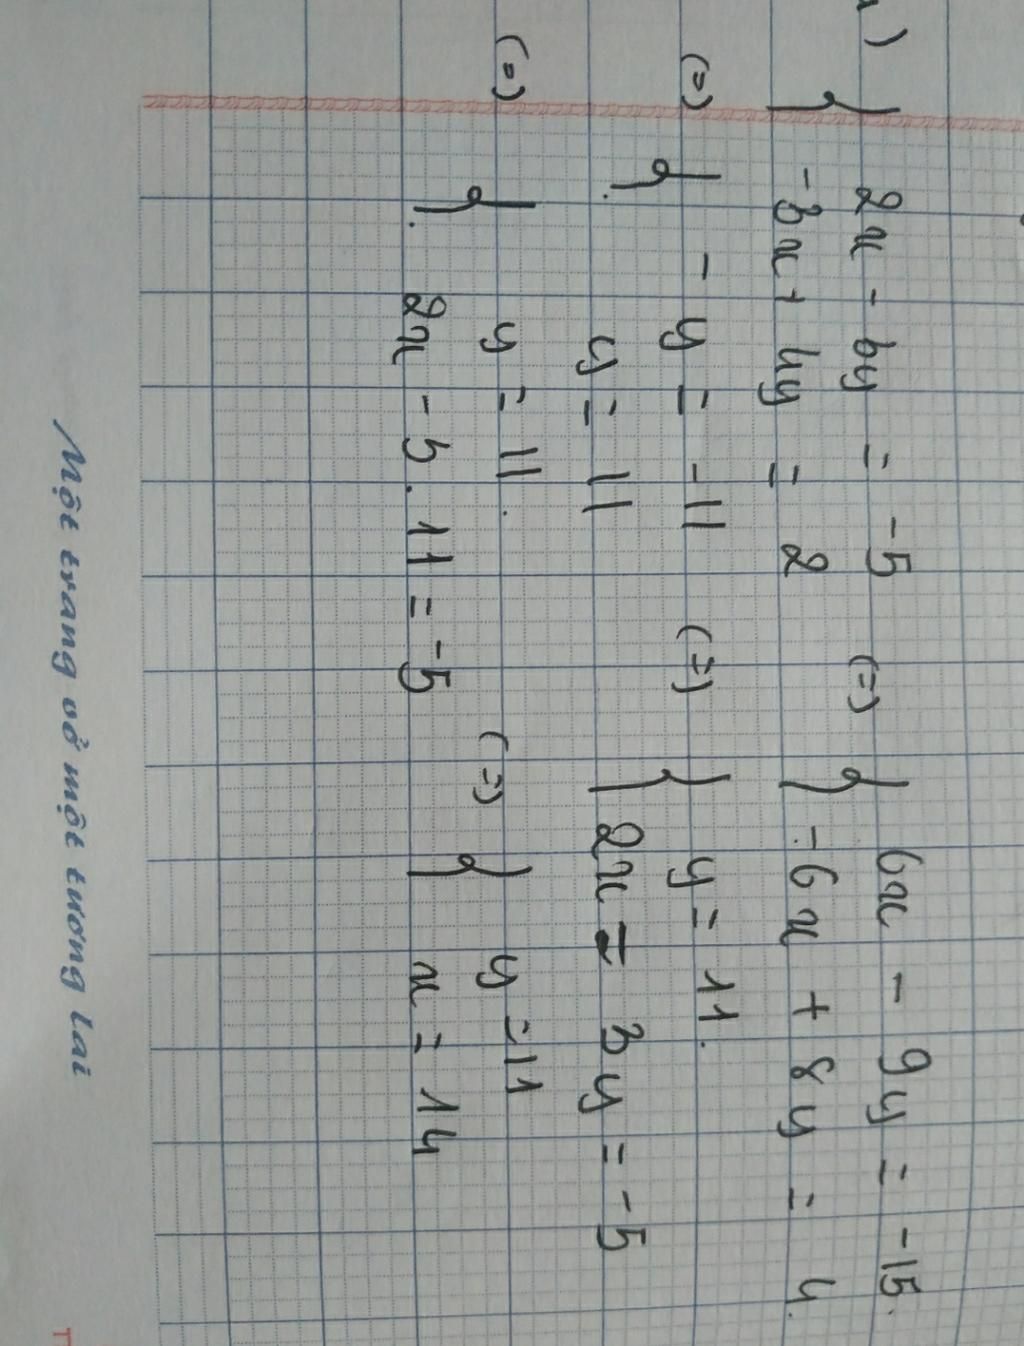 a) { 2x - 3y = -5 (=) { 6x - 9y = -15.
-3x + 4y = 2 -6x + 8y = 4.
(=) { - y = -11 (=) { y = 11.
y = 11 2x = 3y = -5
(=) { y = 11. (=) { y = 11
2x - 3. 11 = -5 x = 14
Một trang vở một tương lai